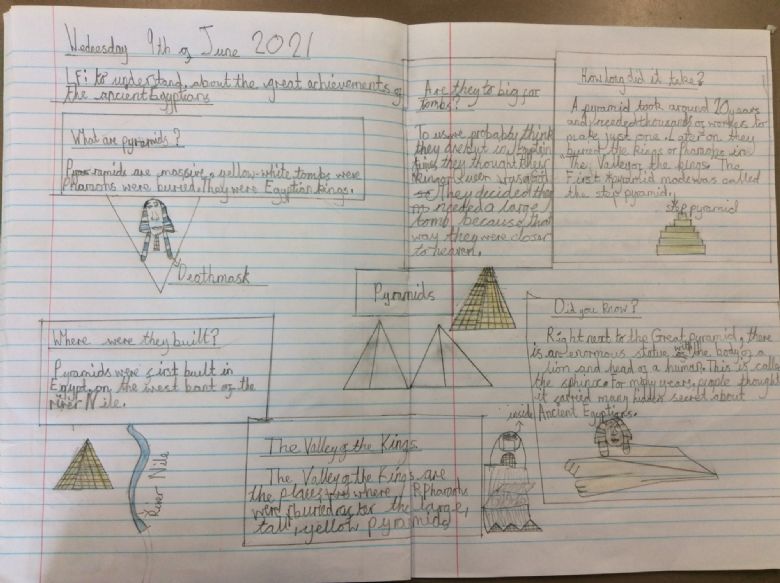 Wednesday 9th of June 2021
LF: to understand about the great achievements of
the ancient Egyptians
What are pyramids?
ramids are massive, yellow-white tombs were
Pharaohs were buried. They were Egyptian kings.
Deathmask
Where were they built?
Pyramids were first built in
Egypt, on the west bank of the
river Nile.
River Nile
Pyramids
The Valley of the Kings
The Valley of the Kings are
the places where Pharaohs
were buried for the large,
tall, yellow pyramids
inside
Are they to big for
tombs?
To us we probably think
they are but in Egyptian
times they thought their
King or Queen was a God
They decided they
needed a large
tomb because that
way they were closer
to heaven.
How long did it take?
A pyramid took around 20 years
and needed thousands of workers to
make just one. Later on they
buried the kings or Pharaohs in
The Valley of the kings. The
First pyramid made was called
the step pyramid.
step pyramid
Did you know?
Right next to the Great pyramid, there
is an enormous statue with the body of a
lion and head of a human. This is called
the sphinx. For many years, people thought
it carried many hidden secret about
Ancient Egyptians.